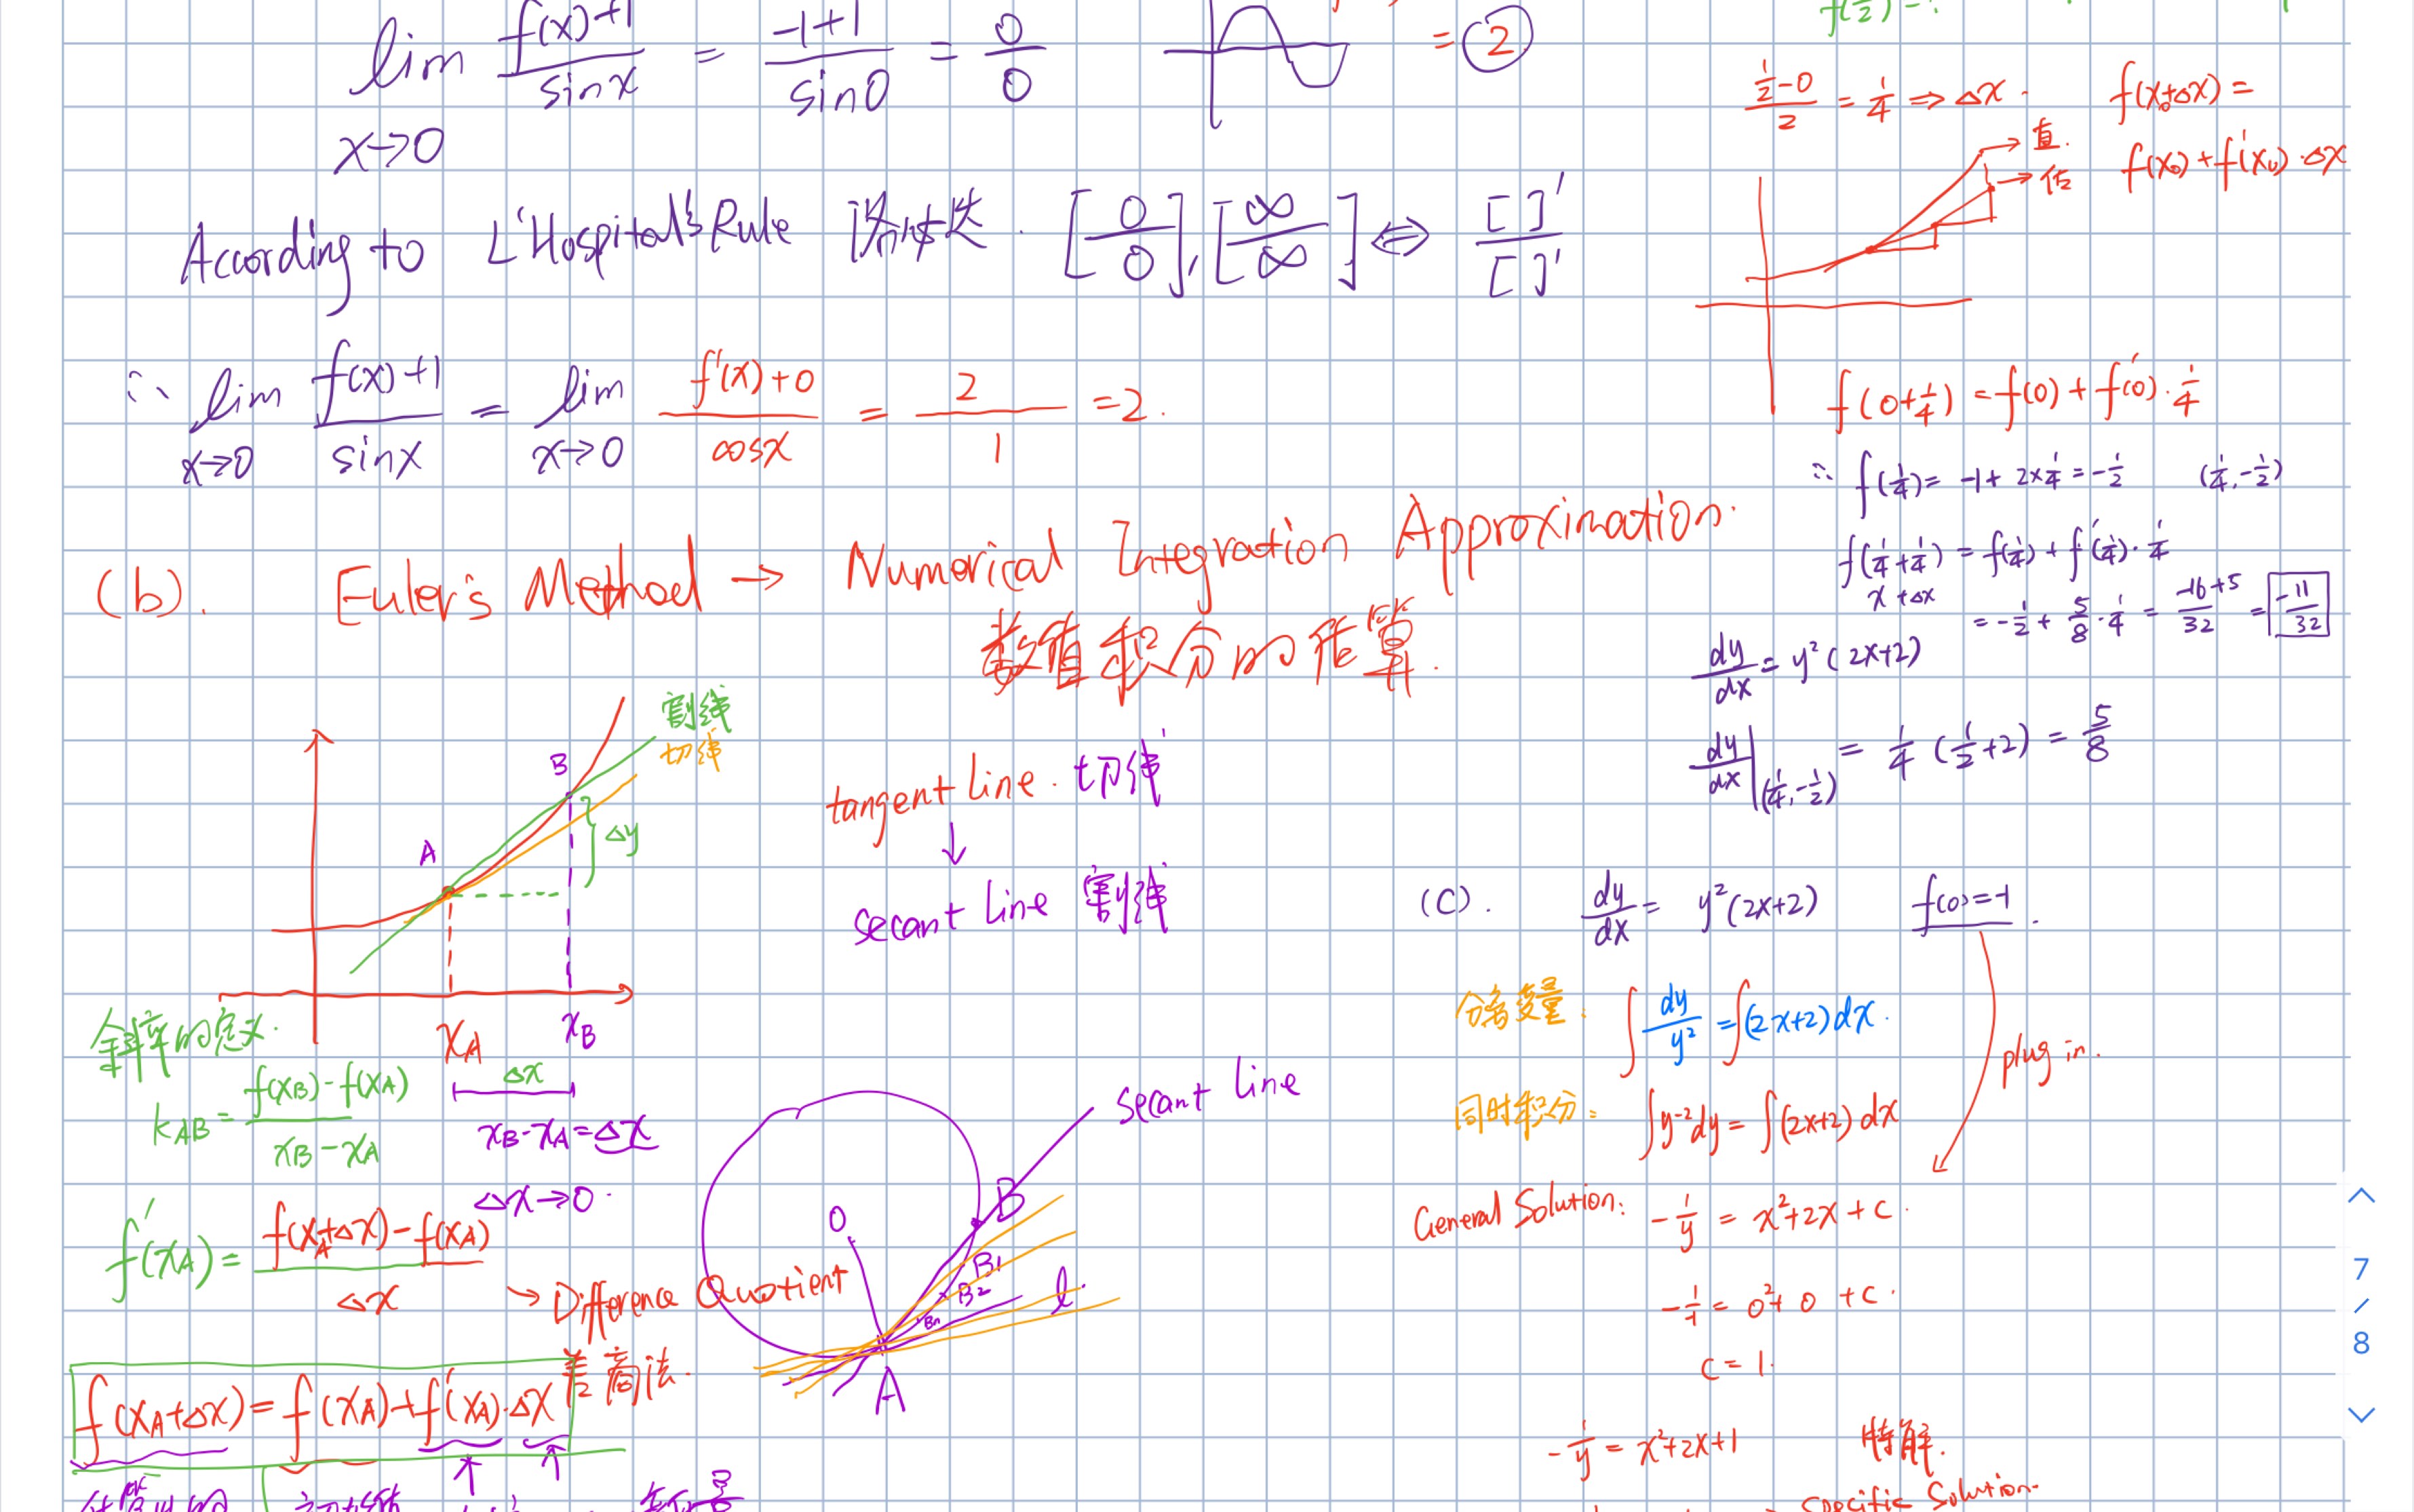 lim x→0 f(x)+1 / sinx = -1+1 / sin0 = 0/0
= 2
According to L'Hospital's Rule 洛必达. [0/0], [∞/∞] ⇔ [ ]' / [ ]'
∴ lim x→0 f(x)+1 / sinx = lim x→0 f'(x)+0 / cosx = 2/1 = 2.
(b). Euler's Method → Numerical Integration Approximation.
数值积分的估算.
割线
切线
B
A
Δy
x_A
x_B
Δx
x_B-x_A=Δx
Δx→0.
tangent line. 切线
↓
secant line 割线
斜率的定义.
k_AB = f(x_B)-f(x_A) / x_B-x_A
f'(x_A) = f(x_A+Δx)-f(x_A) / Δx → Difference Quotient
差商法.
f(x_A+Δx)=f(x_A)+f'(x_A)·Δx
secant line
O
B
B1
B2
Bn
l
A
f(1/2)=?
1/2-0 / 2 = 1/4 ⇒ Δx.
f(x0+Δx)=
f(x0)+f'(x0)·Δx
→直.
→估
f(0+1/4)=f(0)+f'(0)·1/4
∴ f(1/4)= -1+2×1/4=-1/2 (1/4,-1/2)
f(1/4+1/4)=f(1/4)+f'(1/4)·1/4
x+Δx
= -1/2+5/8·1/4 = -16+5 / 32 = -11/32
dy/dx = y²(2x+2)
dy/dx |(1/4,-1/2) = 1/4 (1/2+2) = 5/8
(C). dy/dx = y²(2x+2) f(0)=-1.
分离变量: ∫dy/y² = ∫(2x+2)dx.
plug in.
同时积分: ∫y⁻²dy = ∫(2x+2)dx
General Solution: -1/y = x²+2x+c.
-1/-1 = 0²+0+c.
c=1.
-1/y = x²+2x+1 特解.
Specific Solution.
7
/
8